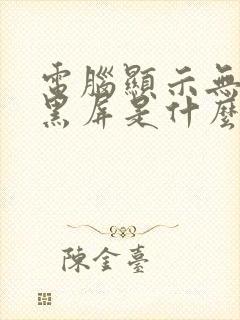 電腦顯示無
黑屏是什麼
陳金臺